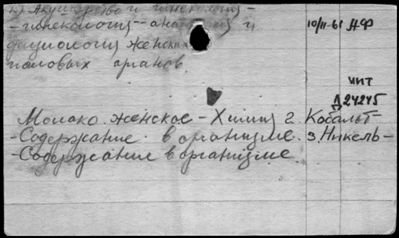 1) Акушерство и гинекология -
- гинекология - анатомия и
физиология женских
половых органов
10/II-61 А.Ф
ЦИТ
Д24245
Молоко женское - Химия 2. Кобальт -
- Содержание в организме. 3. Никель -
- Содержание в организме